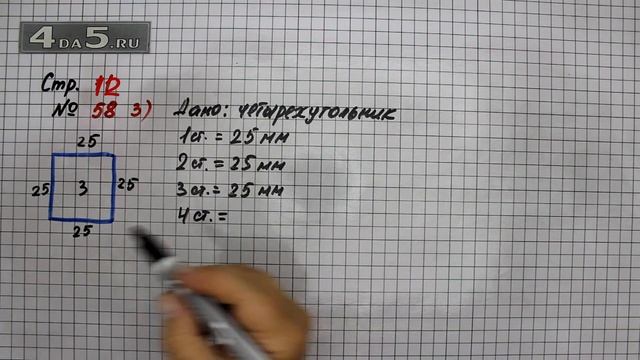 4DA5.RU
Стр. 12
№ 58 3) Дано: четырехугольник
25
1 ст. = 25 мм
2 ст. = 25 мм
25 3 25
3 ст. = 25 мм
4 ст. =
25